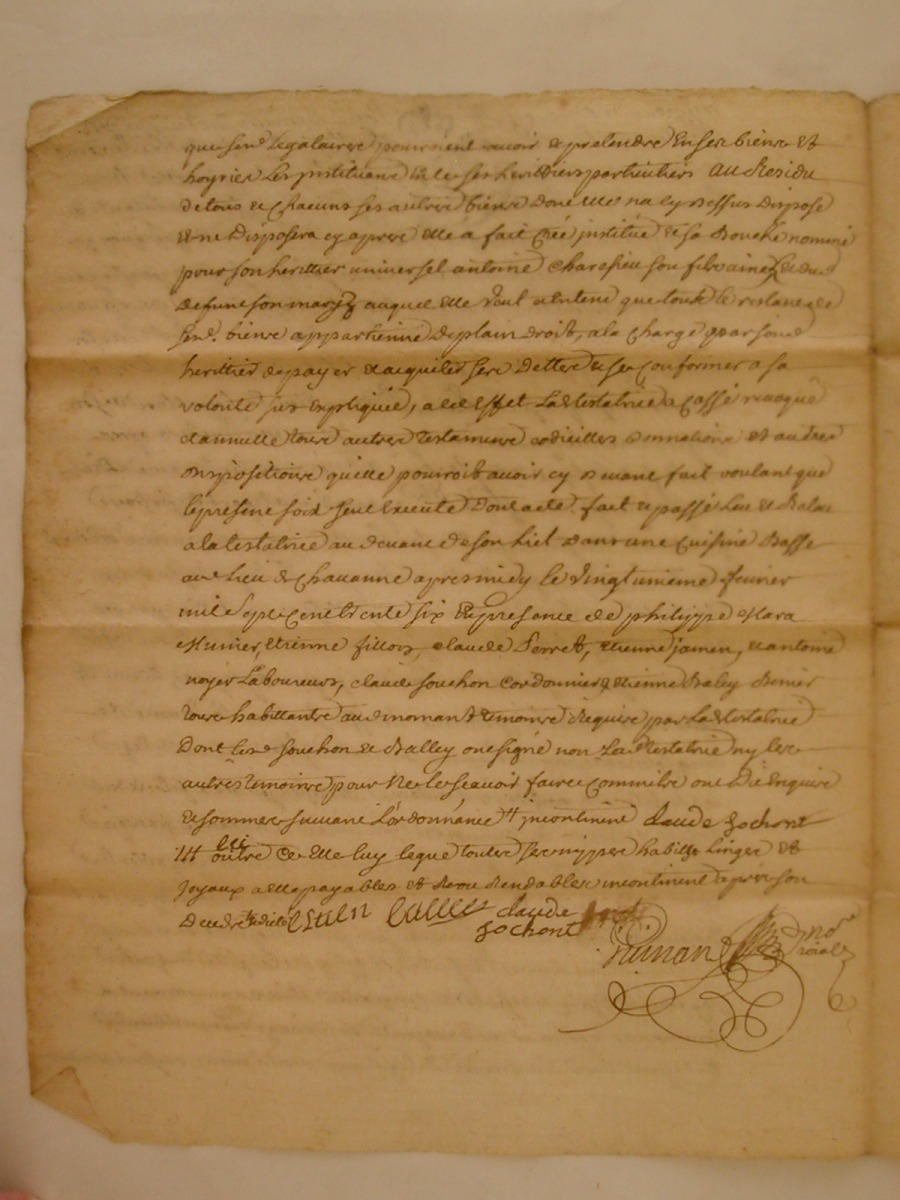 que sesd legataires pourroient avoir et pretendre en ses biens et
hoyries les instituans en ce ses herittiers particuliers au Residu
de tous et chacuns ses autres biens dont elle na cy dessus dispose
et ne disposera cy apres elle a fait créé institué et sa Bouche nommé
pour son herittier universel antoine charesieu son fils ainé et dud
defunt son mary auquel elle veut et entend que tout le restant de
sesd. biens appartienne de plain droit, a la charge par sond
herittier de payer et acquiter ses dettes et se conformer a sa
volonté sus expliquée, a cet effet La testatrice a cassé revoqué
et annullé tous autres testamens codicilles donnations et autres
dispositions quelle pourroit avoir cy devant fait voulant que
le present soit seul executé dont acte fait et passé leu et
a la testatrice au devant de son lict dans une cuisine Basse
aud lieu de Chavanne apres midy le vingtunieme fevrier
mil sept cent trente six en presence de philippe
Munier, etienne fillois, claude Perret, etienne jamen, et antoine
noyer Laboureurs, claude souchon cordonnier et etienne Baley
tous habittants aud temoins Requis par La testatrice
dont lesd souchon et Balley ont signé non La testatrice ny les
autres temoins pour ne le scavoir faire comm ont dit Enquis
et sommés suivant L'ordonnance # incontinent claude sochont
# et outre ce elle luy legue toutes ses nippes habitts linges et
joyaux a elle payables et rendables incontinent apres son
Deceds claude
sochont